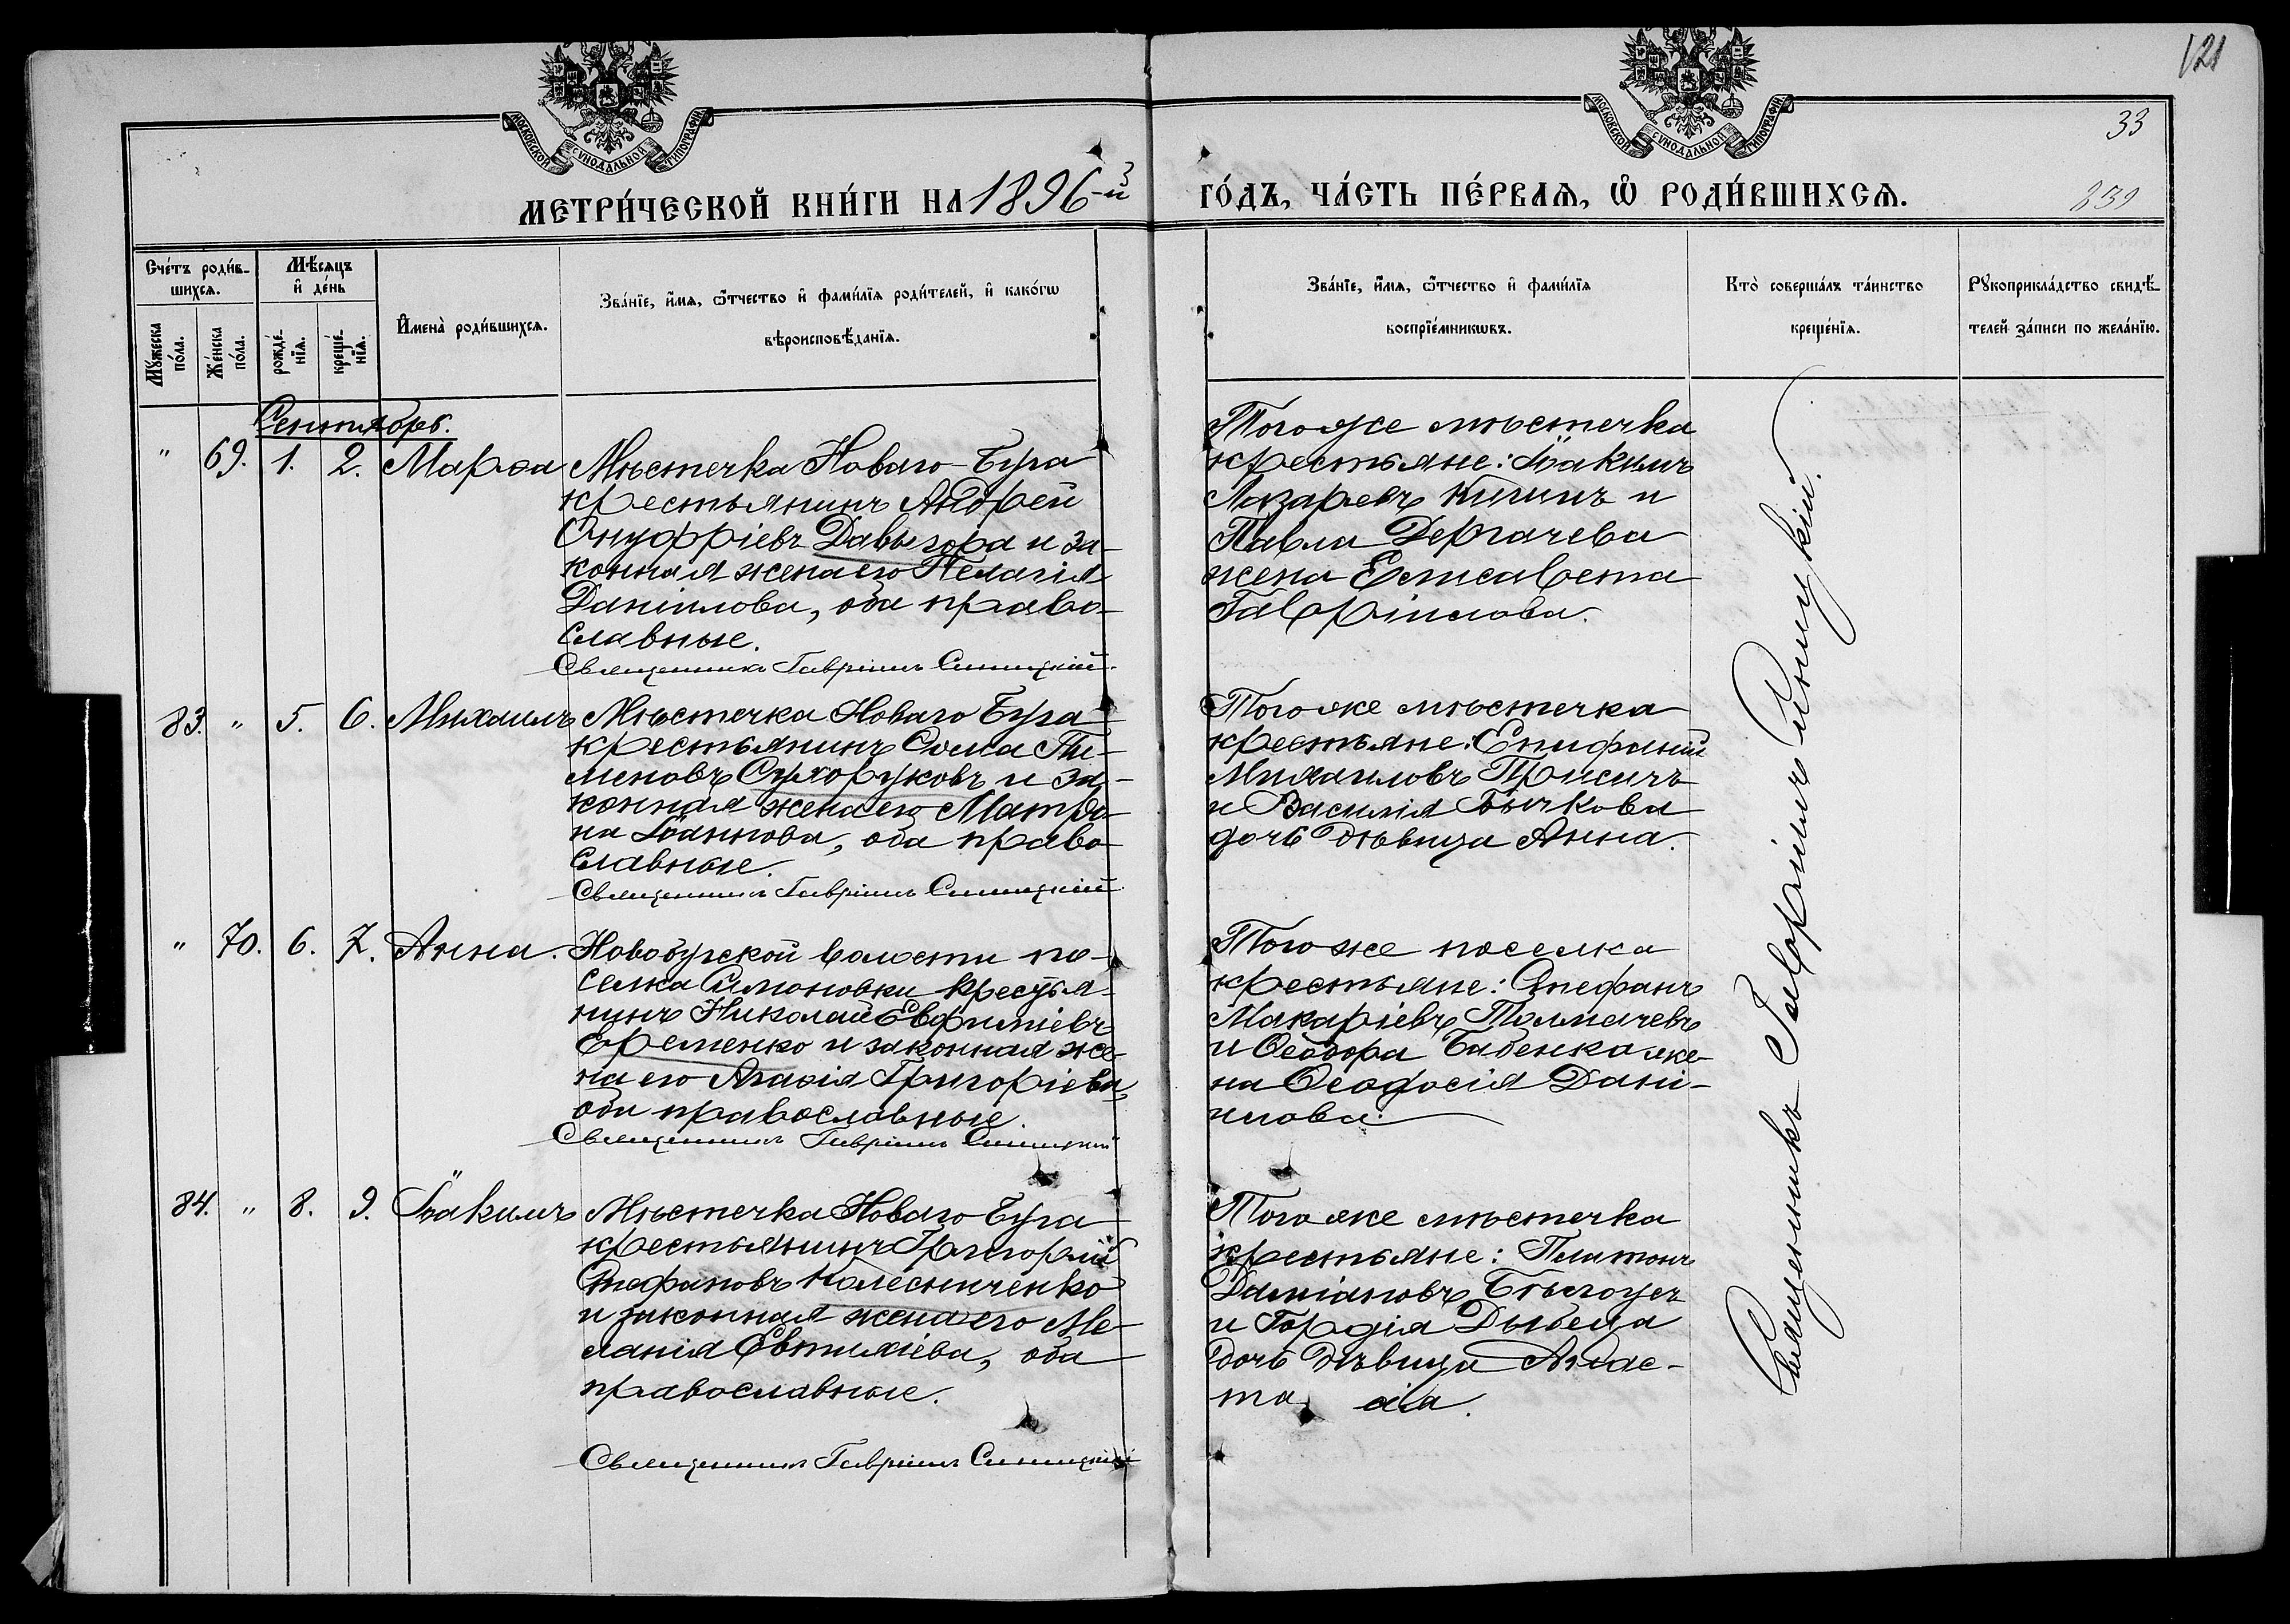 121
33
239
МОСКОВСКОЙ СѴНОДАЛЬНОЙ ТИПОГРАФІИ
МОСКОВСКОЙ СѴНОДАЛЬНОЙ ТИПОГРАФІИ
МЕТРИ́ЧЕСКОЙ КНИ́ГИ НА 1896-й
ГО́ДЪ, ЧА́СТЬ ПЕ́РВАЯ, Ѡ҆ РОДИ́ВШИХСЯ.
Сче́тъ роди́в-
шихся.
Мѣ́сяцъ
и҆ де́нь
Мꙋ́жеска
по́ла.
Же́нска
по́ла.
рожде́-
нїя.
креще́-
нїя.
И҆мена̀ роди́вшихся.
Зва́нїе, и҆́мя, ѻ҆́тчество и҆ фами́лїя роди́телей, и҆ како́гѡ
вѣроисповѣ́данїя.
Зва́нїе, и҆́мя, ѻ҆́тчество и҆ фами́лїя
воспрїе́мникѡвъ.
Кто̀ соверша́лъ та́инство
креще́нїя.
Рꙋкоприкла́дство свидѣ́-
телей за́писи по жела́нїю.
Сентябрь.
" 69. 1. 2. Марѳа
Мѣстечка Новаго-Буга
крестьянинъ Андрей
Онуфріевъ Давыгора и за-
конная жена его Пелагія
Даніилова, оба право-
славные.
Священникъ Гавріилъ Синицкій.
Того же мѣстечка
крестьяне: Іоакимъ
Лазаревъ и
Павла Дергачева
жена Елисавета
Гавріилова.
83. " 5. 6. Михаилъ
Мѣстечка Новаго Буга
крестьянинъ Ѳома Пи-
меновъ Сухоруковъ и за-
конная жена его Матро-
на Іоаннова, оба право-
славные.
Священникъ Гавріилъ Синицкій
Того же мѣстечка
крестьяне: Епифаній
Михаиловъ
и Василія Бычкова
дочь дѣвица Анна.
" 70. 6. 7. Анна.
Новобугской волости по-
селка Симоновки крестья-
нинъ Николай Евфиміевъ
Еременко и законная же-
на его Агаѳія Григоріева,
оба православные.
Священникъ Гавріилъ Синицкій
Того же поселка
крестьяне: Стефанъ
Макаріевъ Толмачевъ
и Ѳеодора Бабенка же-
на Ѳеодосія Дані-
илова.
84. " 8. 9. Іоакимъ
Мѣстечка Новаго Буга
крестьянинъ Григорій
Стефановъ Колесниченко
и законная жена его Ме-
ланія Евтихіева, оба
православные.
Священникъ Гавріилъ Синицкій
Того же мѣстечка
крестьяне: Платонъ
Даміановъ
и Гордія Дыбеца
дочь дѣвица Анас-
та сія.
Священникъ Гавріилъ Синицкій.